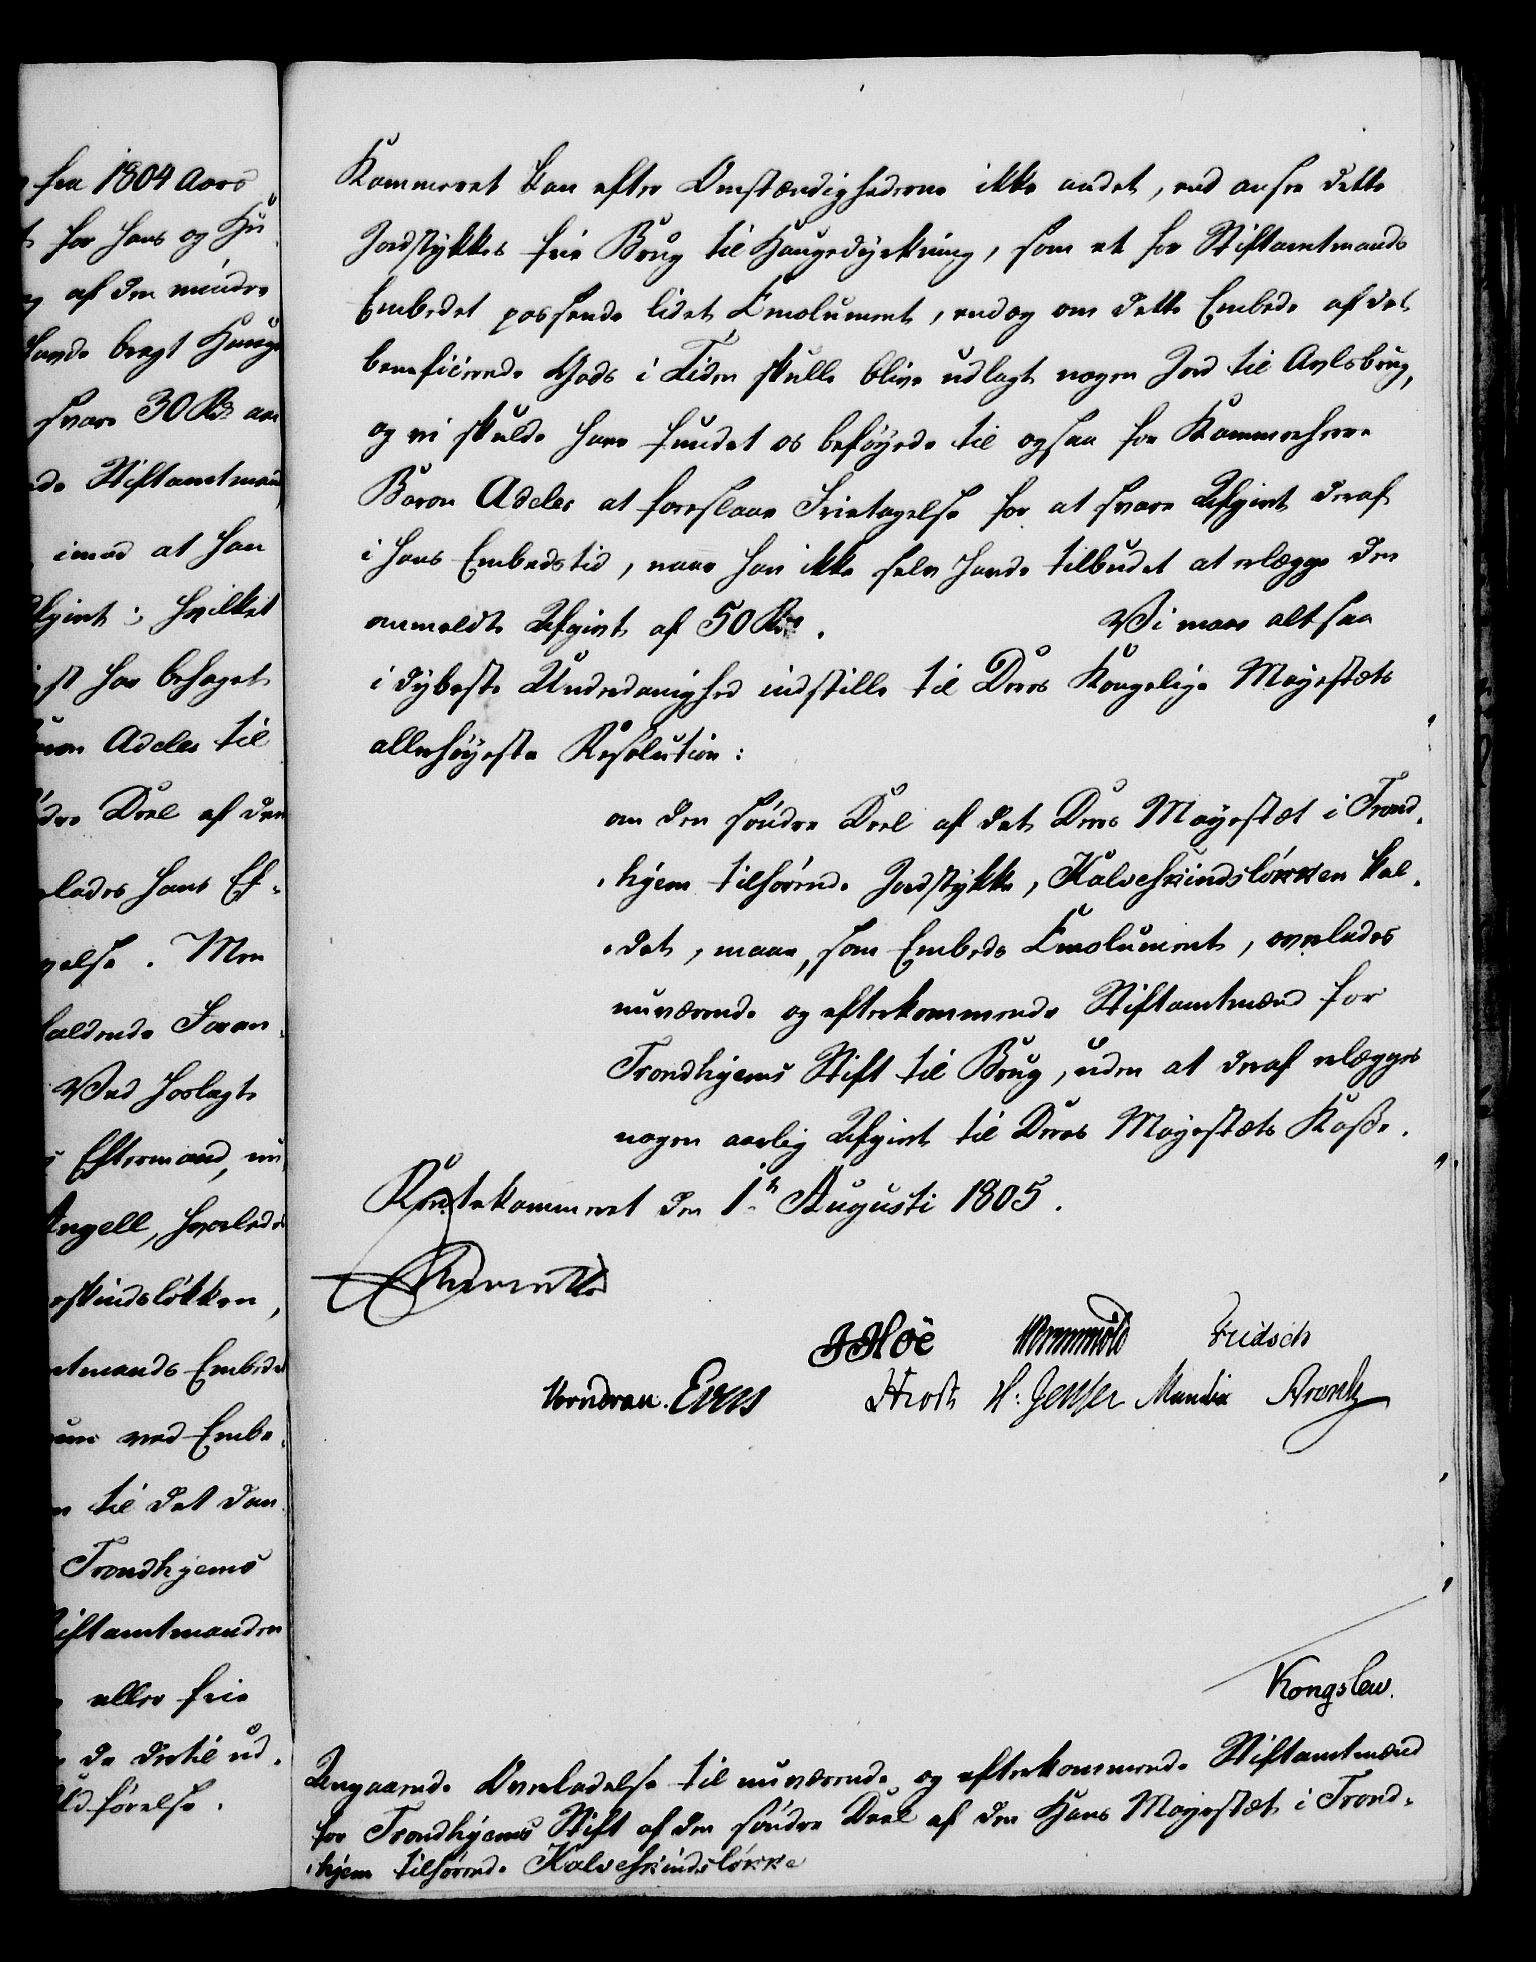 fra 1804 Aars
for hans og Hu-
af den mindre
havde bragt Hauge
svare 30 Rd
Stiftamtmand
imod at han
Afgivt; hvilket
har behaget
Adeler til
Deel af den
hans Ef-
Men
Foran-
Ved Forlagt
Eftermand, nu
Angell,
skindsløkken,
mands Embedet
ved Embe-
til det dan-
Trondhjems
Stiftamtmanden
eller frie
da dertil ud-
førelse.
Kammeret kan efter Omstændighederne ikke andet, end ansee dette
Jordstykkes frie Brug til Haugedyrkning, som et for Stiftamtmands
Embedet passende lidet Emolument, endog om dette Embede af det
beneficerende Gods i Tiden skulle blive udlagt nogen Jord til Avlsbrug,
og vi skulde have fundet os beføyede til ogsaa for Kammerherre
Baron Adeler at foreslaae Fritagelse for at svare Afgivt deraf
i hans Embedstid, naar han ikke selv havde tilbudet at erlægge den
anmeldte Afgivt af 50 Rd. Vi maae altsaa
i dybeste Underdanighed indstille til Deres Kongelige Mayestæts
allerhöyeste Resolution:
om den søndre Deel af det Deres Mayestæt i Trond-
-hjem tilhørende Jordstykke, Kalveskindsløkken kal-
-det, maae, som Embeds Emolument, overlades
nuværende og efterkommende Stiftamtmænd for
Trondhjems Stift til Brug, uden at deraf erlægges
nogen aarlig Afgivt til Deres Mayestæts Kasse.
Rentekammeret den 1te Augusti 1805.
JHoë Wormskiold Fridsch
Vorndran. Evers Hiort H. Jensen Manthe Arentz
Kongslew.
Angaaende Overladelse til nuværende og efterkommende Stiftamtmænd
for Trondhjems Stift af den søndre Deel af den Hans Mayestæt i Trond-
-hjem tilhørende Kalveskindsløkke